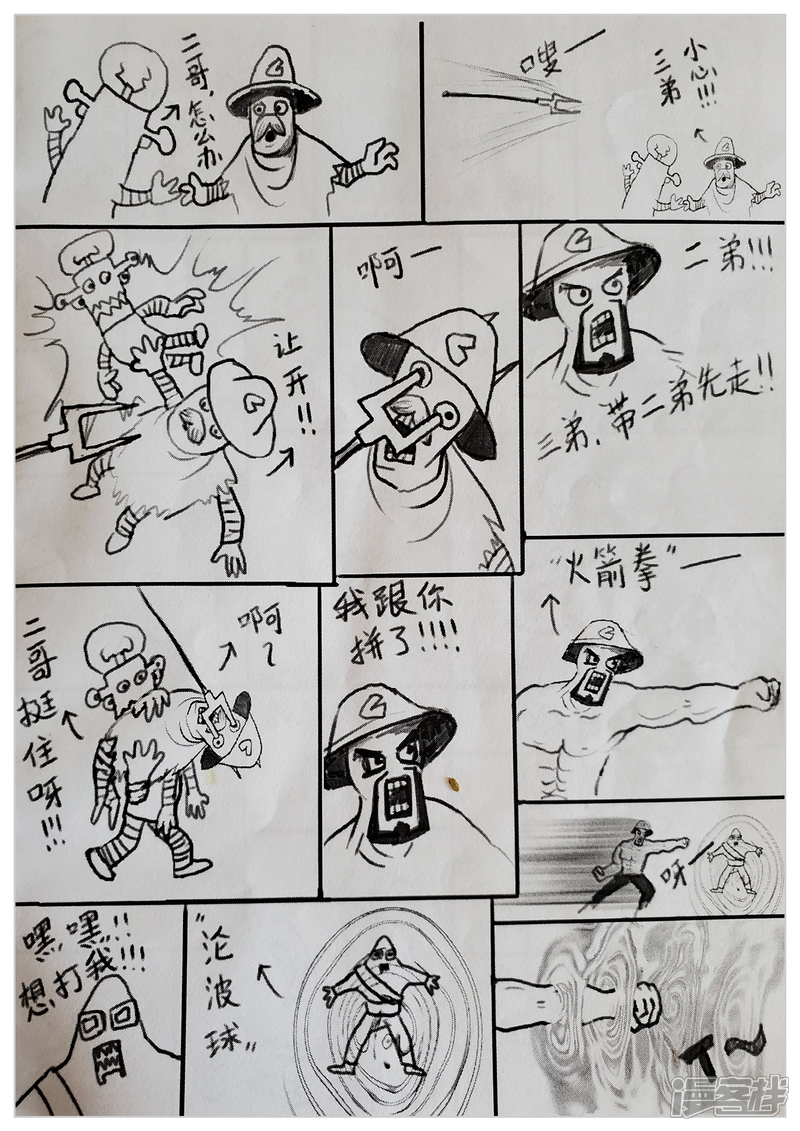 二哥，怎么办
嗖一
小心!!!
三弟
让开!!
啊一
二弟!!!
三弟，带二弟先走!!
二哥挺住呀!!!
啊~
我跟你
拼了!!!!
“火箭拳”一
呀一
嘿，嘿!!
想打我!!!
“沦波球”
漫客栈